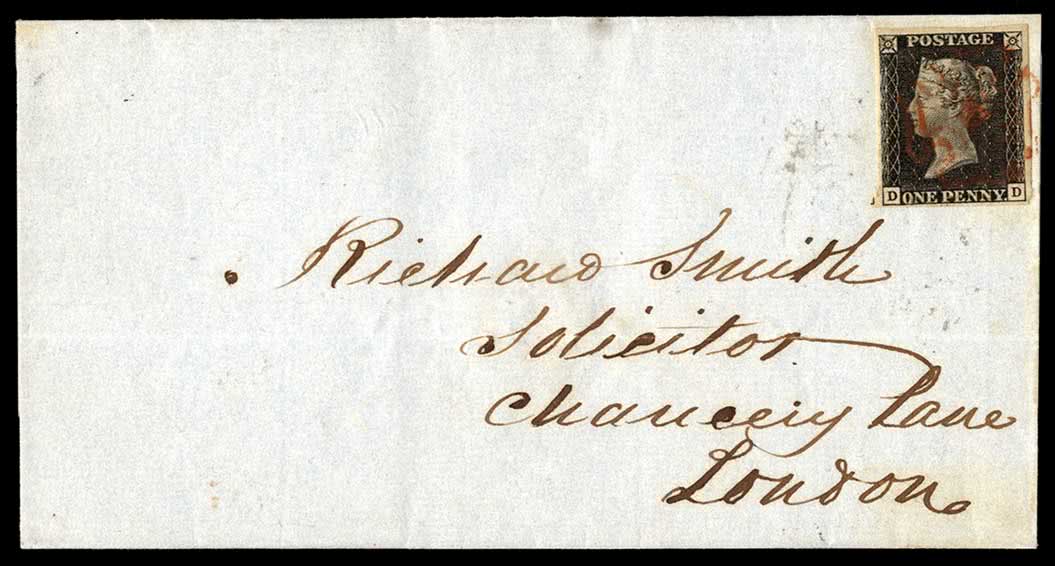 POSTAGE
D ONE PENNY D
Richard Smith
Solicitor
Chancery Lane
London